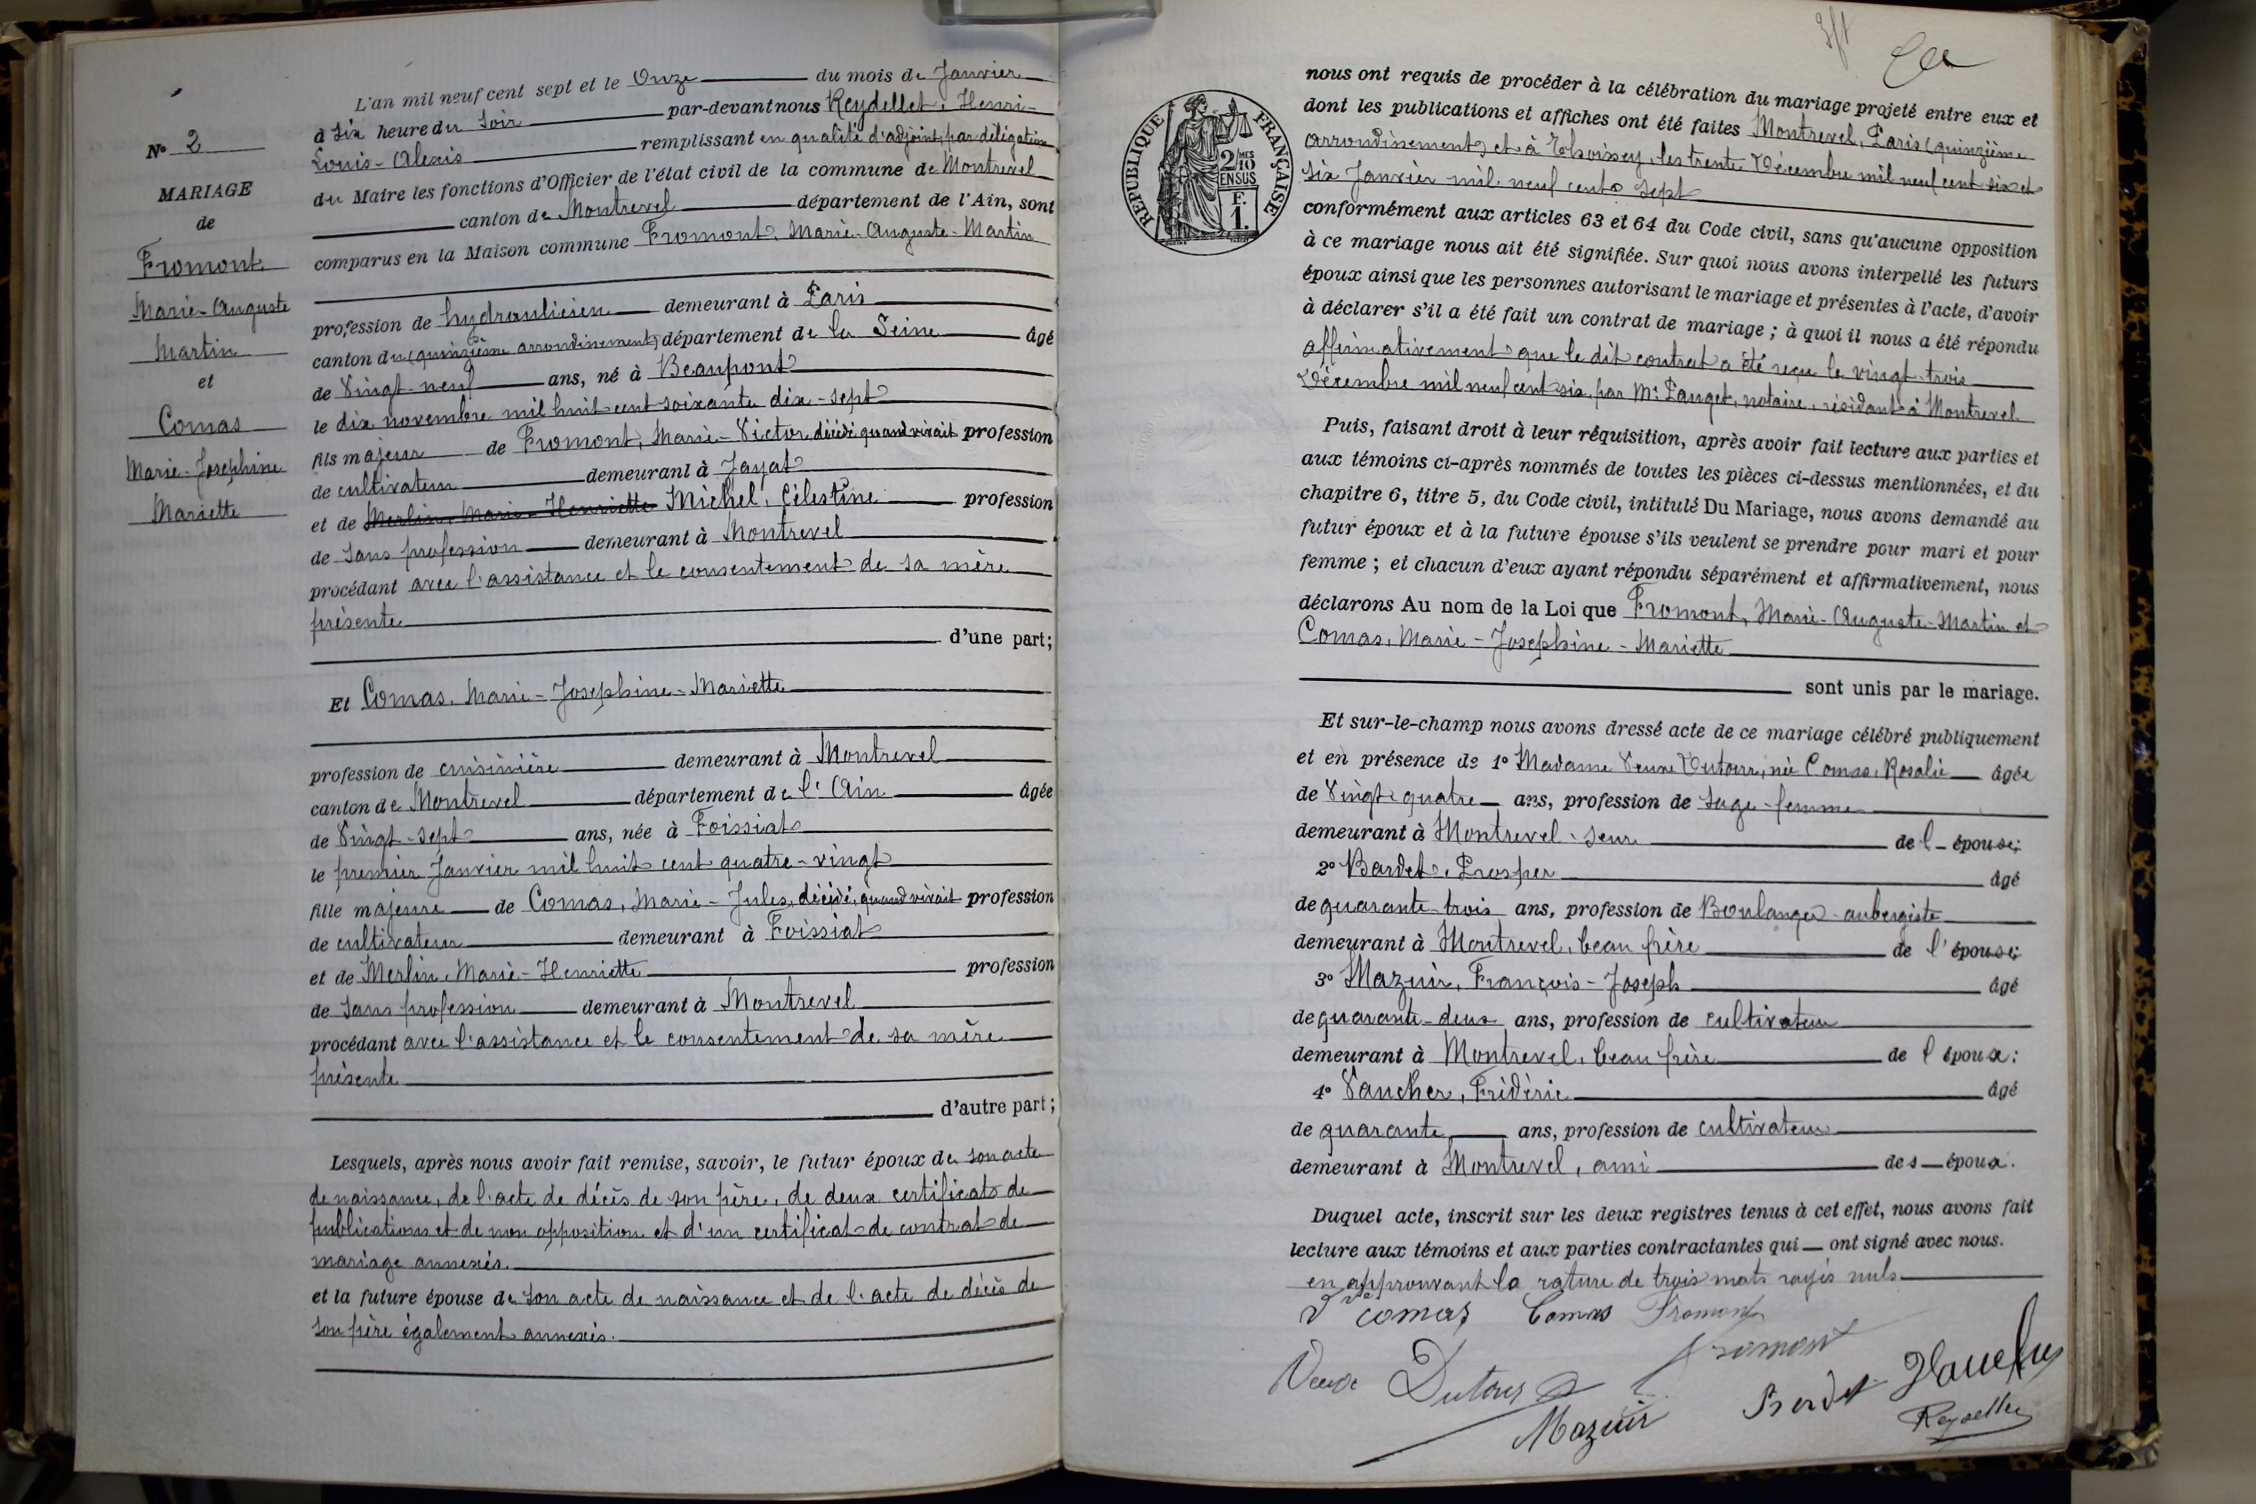 N° 2
MARIAGE
de
Fromont
Marie-Auguste
Martin
et
Comas
Marie-Josephine
Mariette
L'an mil neuf cent sept et le Onze du mois de Janvier
à Six heure du Soir par-devant nous Reydellet, Henri-
Louis-Alexis remplissant en qualité d'adjoint, par délégation
du Maire les fonctions d'Officier de l'état civil de la commune de Montrevel
canton de Montrevel département de l'Ain, sont
comparus en la Maison commune Fromont, Marie-Auguste-Martin
profession de hydraulicien demeurant à Paris
canton du (quinzième arrondissement) département de la Seine âgé
de Vingt-neuf ans, né à Beaupont
le dix novembre mil huit cent soixante dix-sept
fils majeur de Fromont, Marie-Victor, décédé, quand vivait profession
de cultivateur demeurant à Jayat
et de Merlin, Marie-Henriette Michel, Célestine profession
de Sans profession demeurant à Montrevel
procédant avec l'assistance et le consentement de sa mère
présente
d'une part;
Et Comas, Marie-Josephine-Mariette
profession de cuisinière demeurant à Montrevel
canton de Montrevel département de l'Ain âgée
de Vingt-sept ans, née à Foissiat
le premier Janvier mil huit cent quatre-vingt
fille majeure de Comas, Marie-Jules, décédé, quand vivait profession
de cultivateur demeurant à Foissiat
et de Merlin, Marie-Henriette profession
de Sans profession demeurant à Montrevel
procédant avec l'assistance et le consentement de sa mère
présente
d'autre part;
Lesquels, après nous avoir fait remise, savoir, le futur époux de son acte
de naissance, de l'acte de décès de son père, de deux certificats de
publications et de non opposition et d'un certificat de contrat de
mariage annexés.
et la future épouse de son acte de naissance et de l'acte de décès de
son père également annexés.
RÉPUBLIQUE FRANÇAISE
2/10
MES
EN SUS
F.
1.
nous ont requis de procéder à la célébration du mariage projeté entre eux et
dont les publications et affiches ont été faites Montrevel, Paris (quinzième
arrondissement) et à Thoissey, les trente Décembre mil neuf cent six et
six Janvier mil neuf cent sept
conformément aux articles 63 et 64 du Code civil, sans qu'aucune opposition
à ce mariage nous ait été signifiée. Sur quoi nous avons interpellé les futurs
époux ainsi que les personnes autorisant le mariage et présentes à l'acte, d'avoir
à déclarer s'il a été fait un contrat de mariage; à quoi il nous a été répondu
affirmativement que le dit contrat a été reçu le vingt-trois
Décembre mil neuf cent six, par Mr Panget, notaire, résidant à Montrevel
Puis, faisant droit à leur réquisition, après avoir fait lecture aux parties et
aux témoins ci-après nommés de toutes les pièces ci-dessus mentionnées, et du
chapitre 6, titre 5, du Code civil, intitulé Du Mariage, nous avons demandé au
futur époux et à la future épouse s'ils veulent se prendre pour mari et pour
femme; et chacun d'eux ayant répondu séparément et affirmativement, nous
déclarons Au nom de la Loi que Fromont, Marie-Auguste-Martin et
Comas, Marie-Josephine-Mariette
sont unis par le mariage.
Et sur-le-champ nous avons dressé acte de ce mariage célébré publiquement
et en présence de 1° Madame Veuve Dutour, née Comas, Rosalie âgée
de Vingt-quatre ans, profession de sage-femme
demeurant à Montrevel, seur de l'épouse;
2° Bardet, Prosper âgé
de quarante-trois ans, profession de Boulanger-aubergiste
demeurant à Montrevel, beau frère de l'épouse;
3° Mazuir, François-Joseph âgé
de quarante-deux ans, profession de cultivateur
demeurant à Montrevel, beau frère de l époux;
4° Vaucher, Frédéric âgé
de quarante ans, profession de cultivateur
demeurant à Montrevel, ami des époux.
Duquel acte, inscrit sur les deux registres tenus à cet effet, nous avons fait
lecture aux témoins et aux parties contractantes qui ont signé avec nous.
en approuvant la rature de trois mots rayés nuls
Vve comas Comas Fromont
Veuve Dutour Fromont
Mazuir Bardet Vaucher
Reydellet